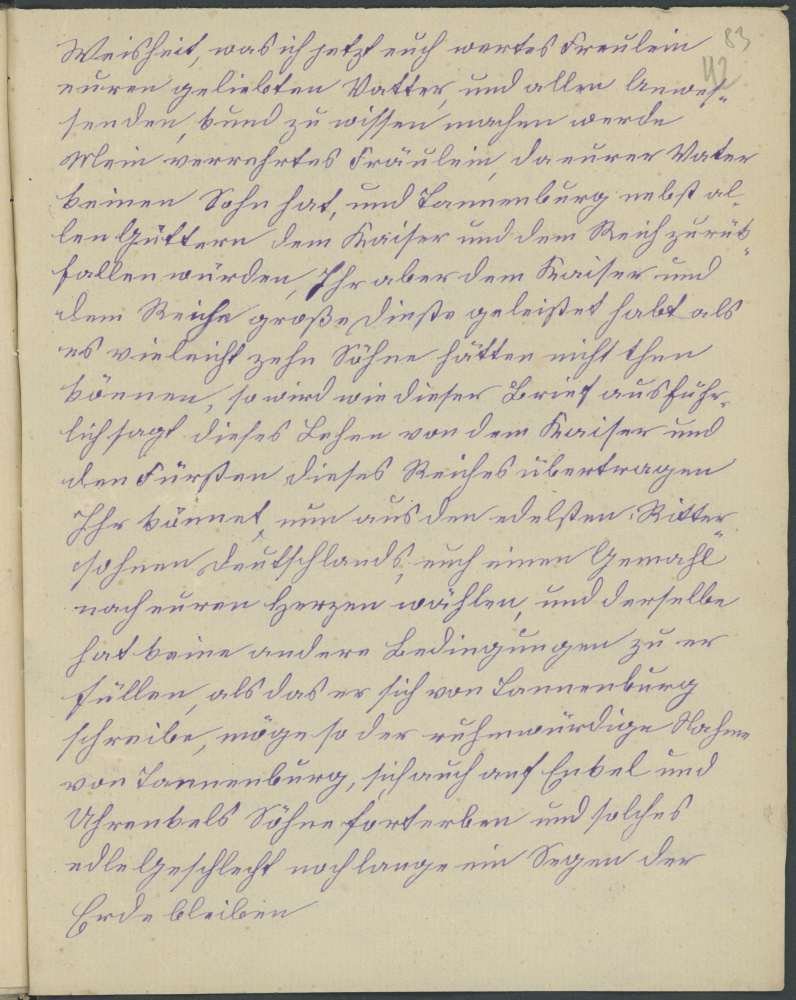 83
42
Weisheit, was ich jetzt euch wertes Freulein
euren geliebten Vatter, und allen Anwes„
senden, kund zu wissen machen werde
Mein verrehrtes Fräulein, da eurer Vater
keinen Sohn hat, und Tannenburg nebst al„
len Güttern dem Kaiser und dem Reich zurük„
fallen würden, Ihr aber dem Kaiser und
dem Reiche große Dinste geleistet habt als
es vieleicht zehn Söhne hätten nicht thun
können, so wird wie dieser Brief ausführ„
lich sagt dieses Lehen von dem Kaiser und
den Fürsten dieses Reiches übertragen
Ihr könnet nun aus den edelsten Ritter„
sohnen Deutschlands, euch einen Gemahl
nach euren Herzen wählen, und derselbe
hat keine andere Bedingungen zu er
füllen, als das er sich von Tannenburg
schreibe, möge so der ruhmwürdige Nahme
von Tannenburg, sich auch auf Enkel und
Uhrenkels Söhne forterben und solches
edle Geschlecht noch lange ein Segen der
Erde bleiben